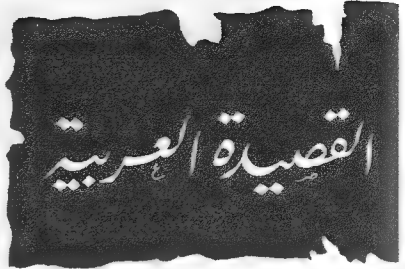 القصيدة العربية